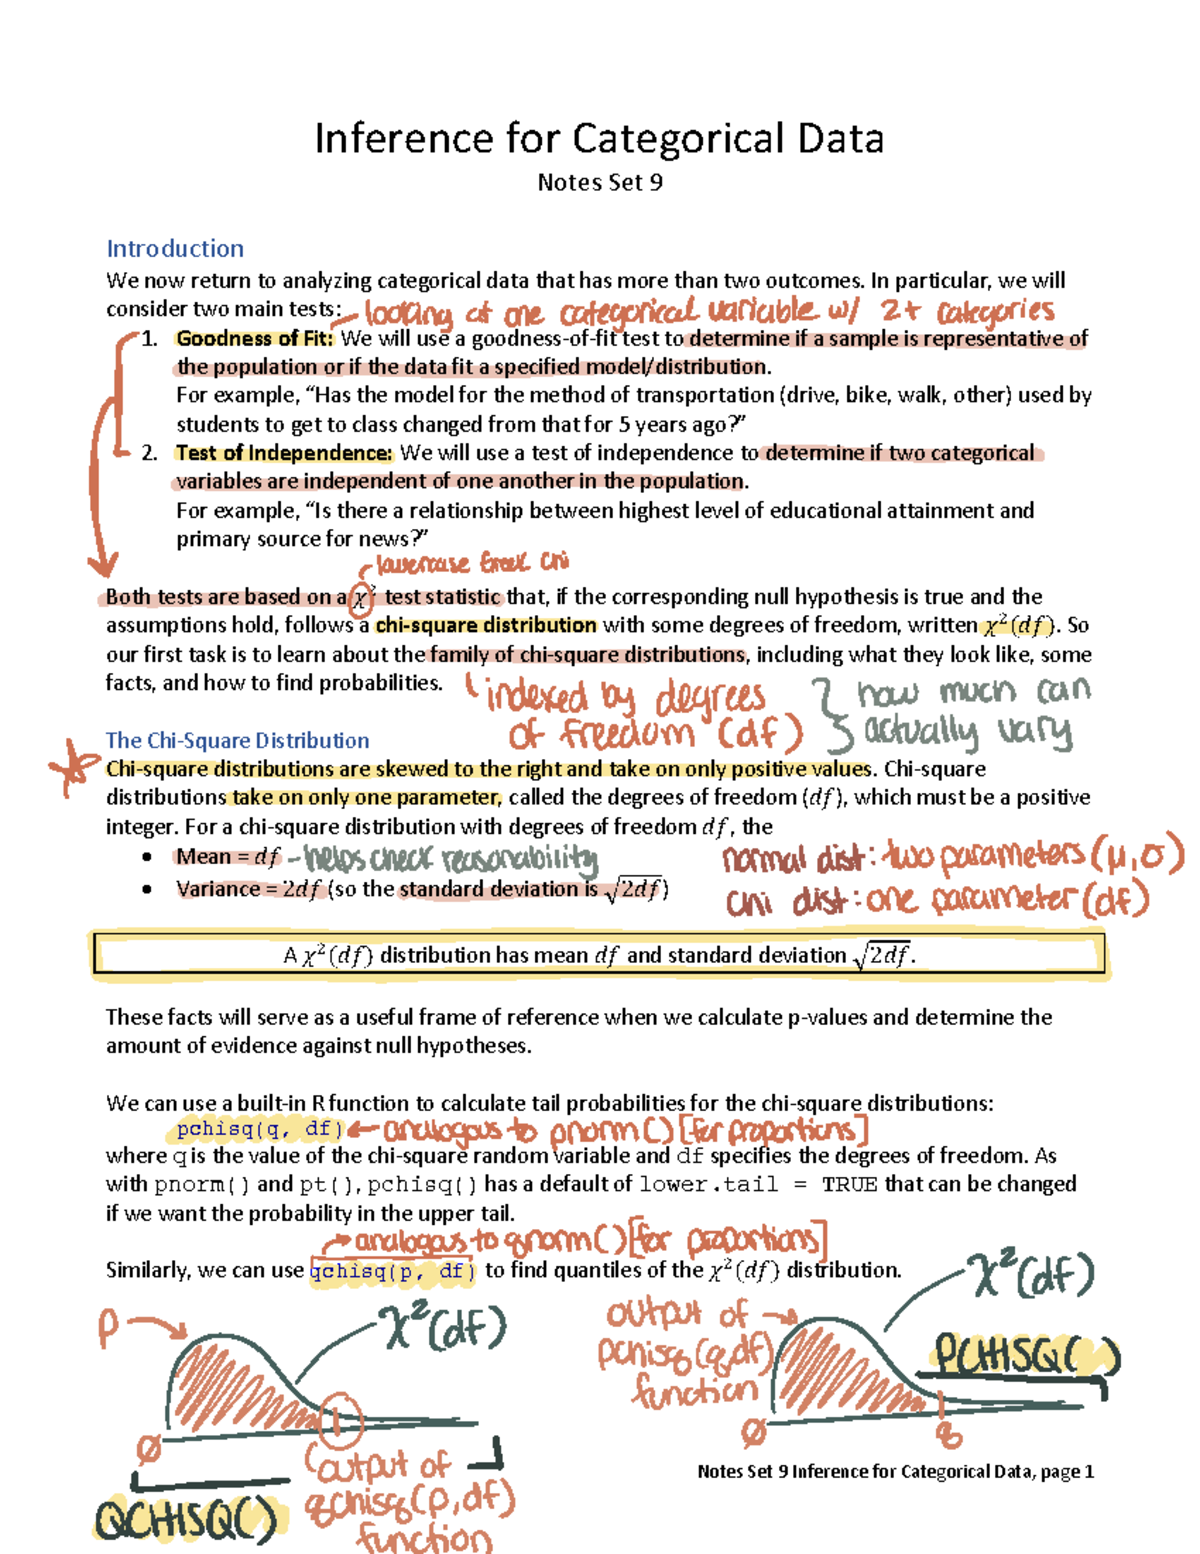 Inference for Categorical Data
Notes Set 9
Introduction
We now return to analyzing categorical data that has more than two outcomes. In particular, we will
consider two main tests: - looking at one categorical variable w/ 2+ categories
1. Goodness of Fit: We will use a goodness-of-fit test to determine if a sample is representative of
the population or if the data fit a specified model/distribution.
For example, “Has the model for the method of transportation (drive, bike, walk, other) used by
students to get to class changed from that for 5 years ago?”
2. Test of Independence: We will use a test of independence to determine if two categorical
variables are independent of one another in the population.
For example, “Is there a relationship between highest level of educational attainment and
primary source for news?”
lowercase Greek chi
Both tests are based on a χ² test statistic that, if the corresponding null hypothesis is true and the
assumptions hold, follows a chi-square distribution with some degrees of freedom, written χ²(df). So
our first task is to learn about the family of chi-square distributions, including what they look like, some
facts, and how to find probabilities.
indexed by degrees
of freedom (df)
how much can
actually vary
The Chi-Square Distribution
Chi-square distributions are skewed to the right and take on only positive values. Chi-square
distributions take on only one parameter, called the degrees of freedom (df), which must be a positive
integer. For a chi-square distribution with degrees of freedom df, the
• Mean = df - helps check reasonability
• Variance = 2df (so the standard deviation is √2df)
normal dist: two parameters (μ, σ)
chi dist: one parameter (df)
A χ²(df) distribution has mean df and standard deviation √2df.
These facts will serve as a useful frame of reference when we calculate p-values and determine the
amount of evidence against null hypotheses.
We can use a built-in R function to calculate tail probabilities for the chi-square distributions:
pchisq(q, df) ← analogous to pnorm() [for proportions]
where q is the value of the chi-square random variable and df specifies the degrees of freedom. As
with pnorm() and pt(), pchisq() has a default of lower.tail = TRUE that can be changed
if we want the probability in the upper tail.
→ analogous to qnorm() [for proportions]
Similarly, we can use qchisq(p, df) to find quantiles of the χ²(df) distribution.
p
χ²(df)
Ø
output of
qchisq(p, df)
function
QCHISQ()
output of
pchisq(q, df)
function
χ²(df)
PCHISQ()
Ø
q
Notes Set 9 Inference for Categorical Data, page 1